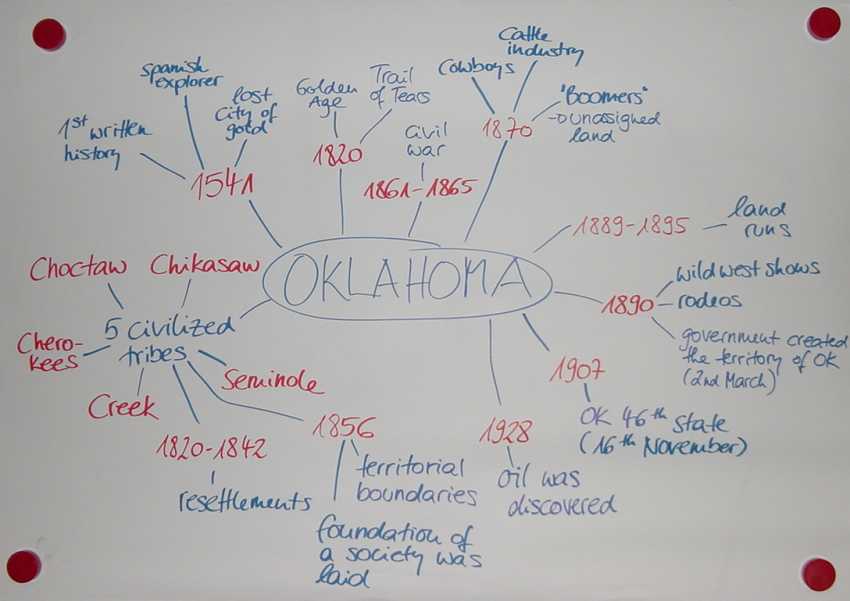 spanish
explorer
lost
City of
gold
1st written
history
1541
Golden
Age
Trail
of Tears
1820
civil
war
1861-1865
Cattle
industry
Cowboys
"Boomers"
→ unassigned
land
1870
OKLAHOMA
1889-1895
land
runs
1890
wild west shows
rodeos
government created
the territory of OK
(2nd March)
1907
OK 46th state
(16th November)
1928
oil was
discovered
Choctaw
Chikasaw
5 civilized
tribes
Chero-
kees
Creek
Seminole
1820-1842
resettlements
1856
territorial
boundaries
foundation of
a society was
laid